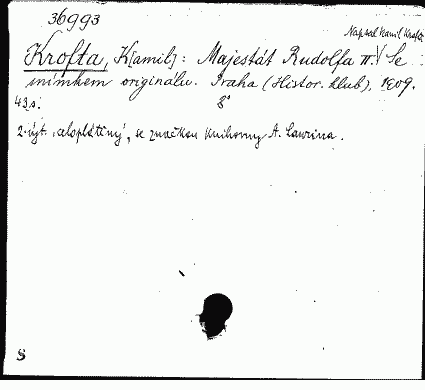 36993
Napsal Kamil Krofta
Krofta, K[amil]: Majestát Rudolfa II. Se
snímkem originálu. Praha (Histor. klub), 1909.
43 s. 8°
2. výt. celoplátěný, se značkou knihovny A. Lawina.
S